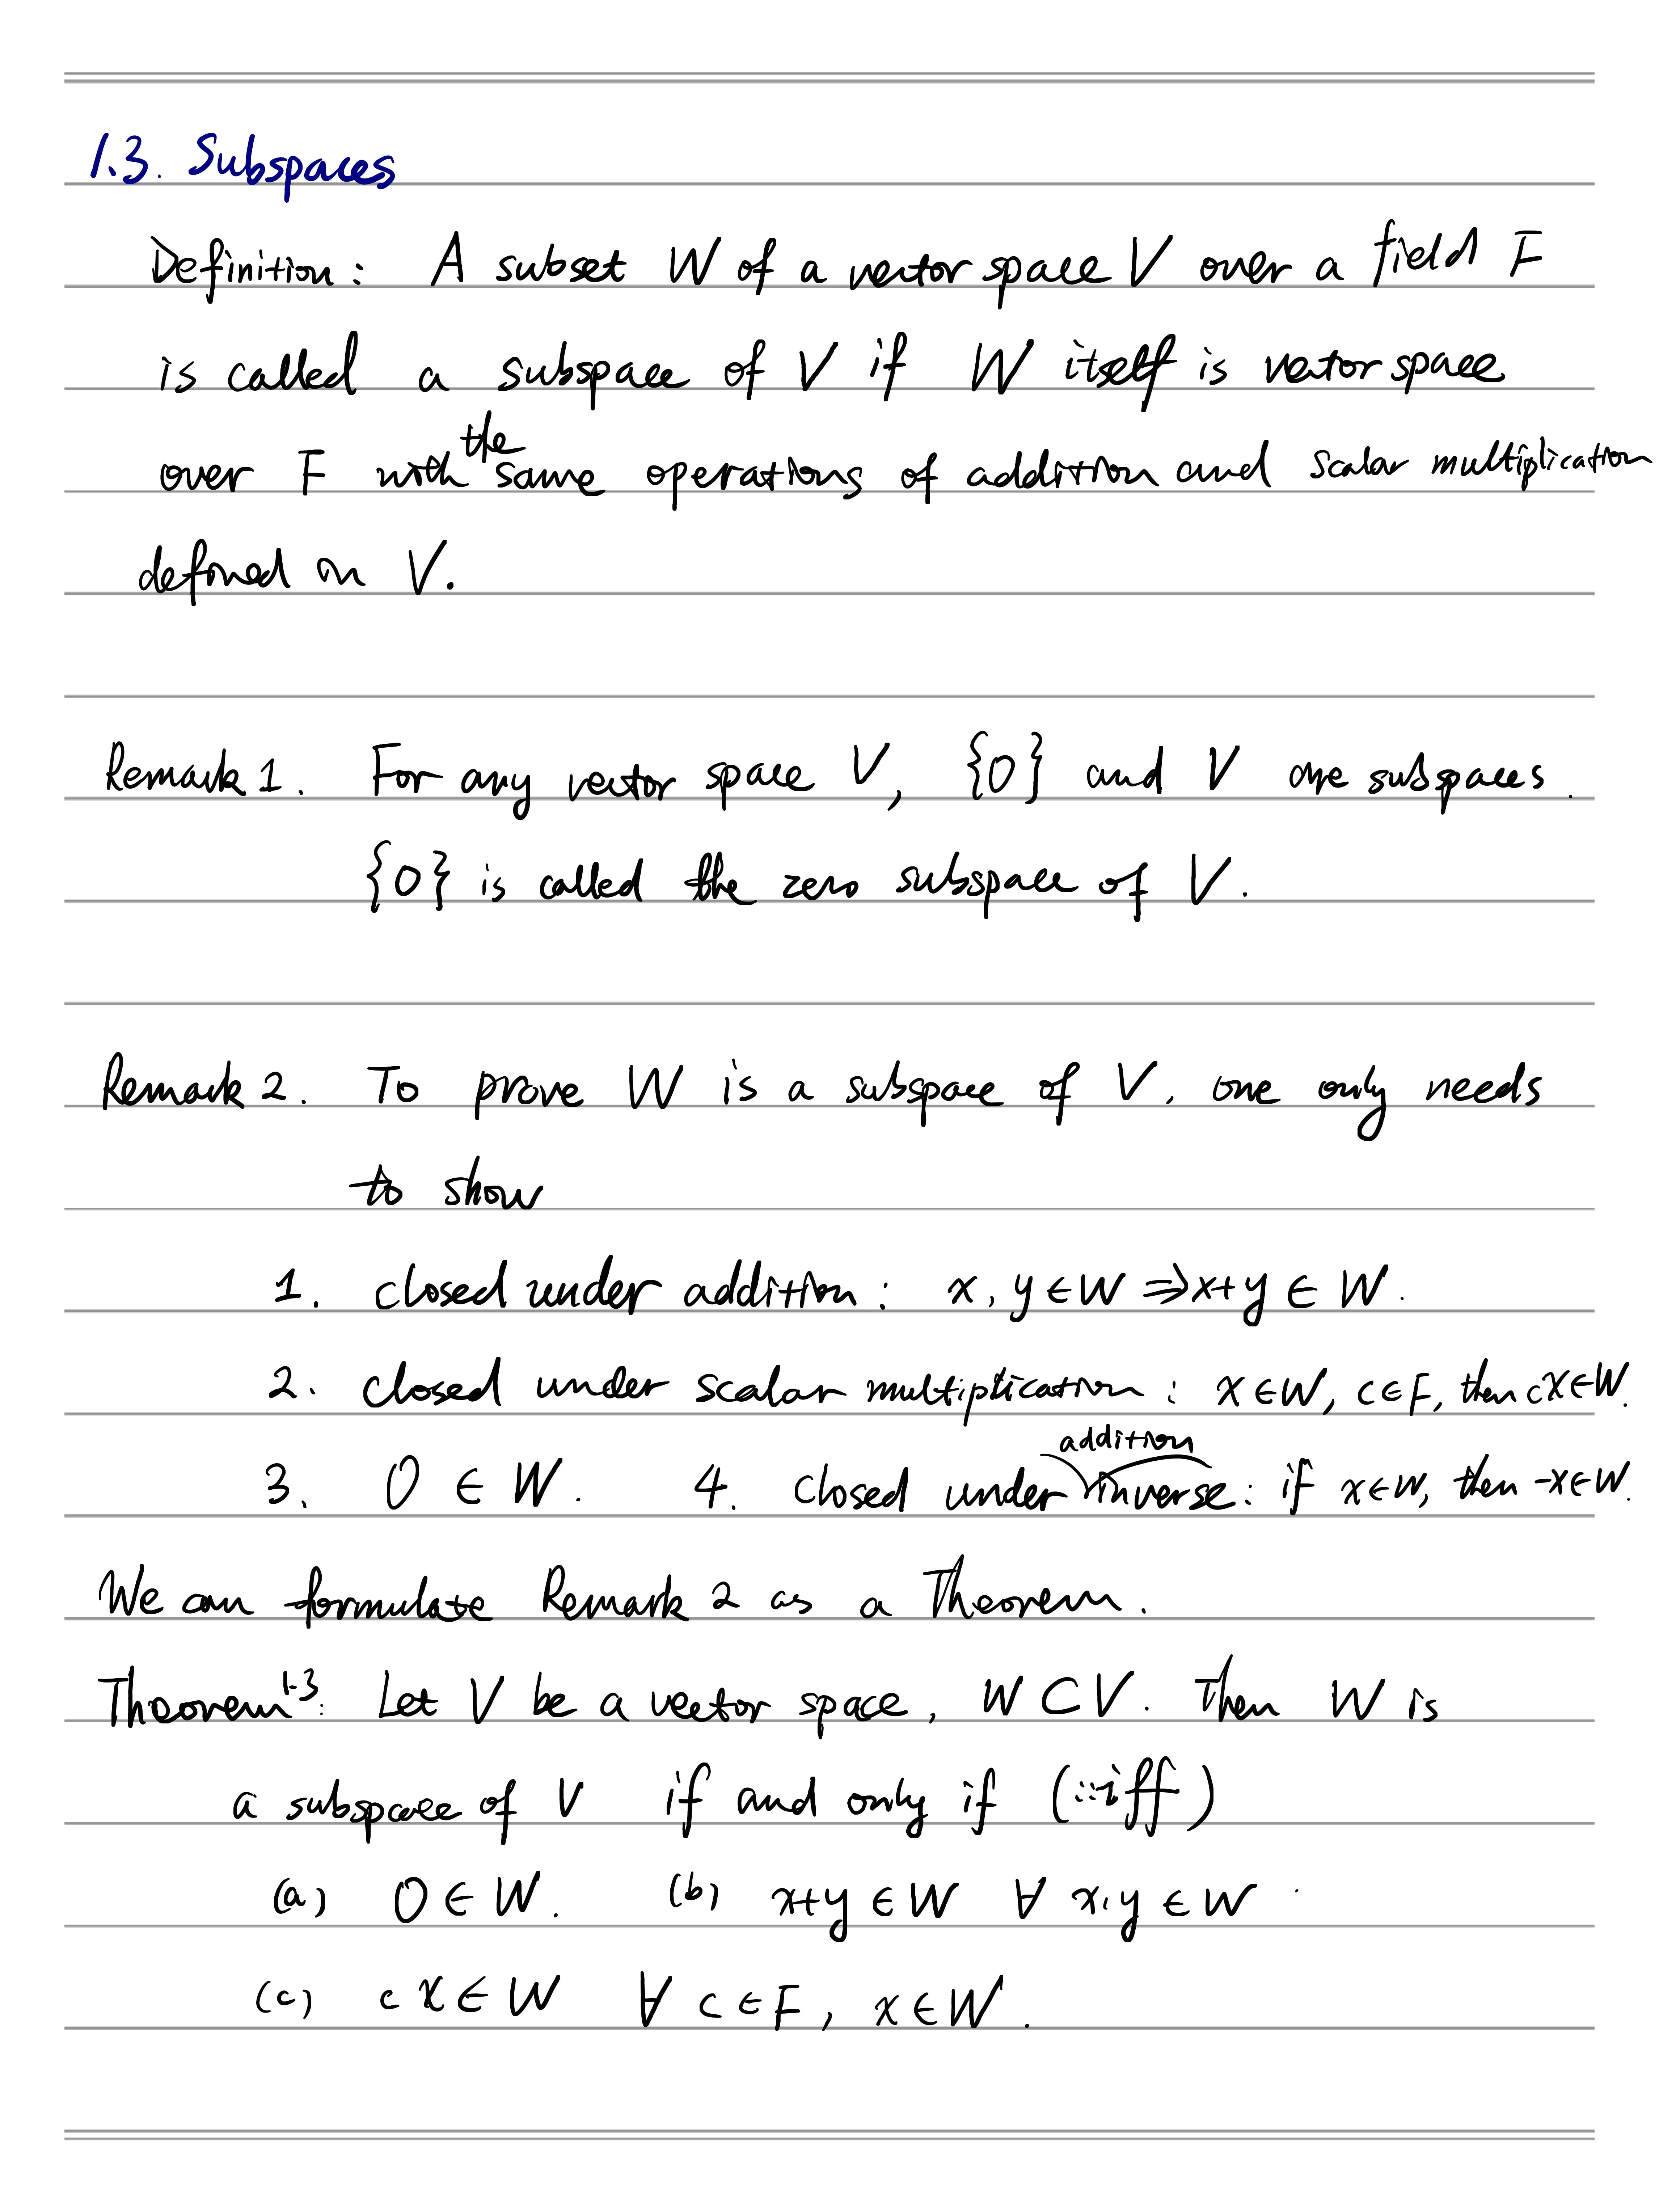 1.3. Subspaces
Definition: A subset W of a vector space V over a field F
is called a subspace of V if W itself is vector space
over F with the same operations of addition and scalar multiplication
defined on V.
Remark 1. For any vector space V, {0} and V are subspaces.
{0} is called the zero subspace of V.
Remark 2. To prove W is a subspace of V, one only needs
to show
1. closed under addition: x, y ∈ W ⇒ x+y ∈ W.
2. closed under scalar multiplication: x ∈ W, c ∈ F, then cx ∈ W.
3. 0 ∈ W. 4. closed under addition inverse: if x ∈ W, then -x ∈ W.
We can formulate Remark 2 as a Theorem.
Theorem 1.3: Let V be a vector space, W ⊂ V. Then W is
a subspace of V if and only if (::iff)
(a) 0 ∈ W. (b) x+y ∈ W ∀ x, y ∈ W.
(c) cx ∈ W ∀ c ∈ F, x ∈ W.